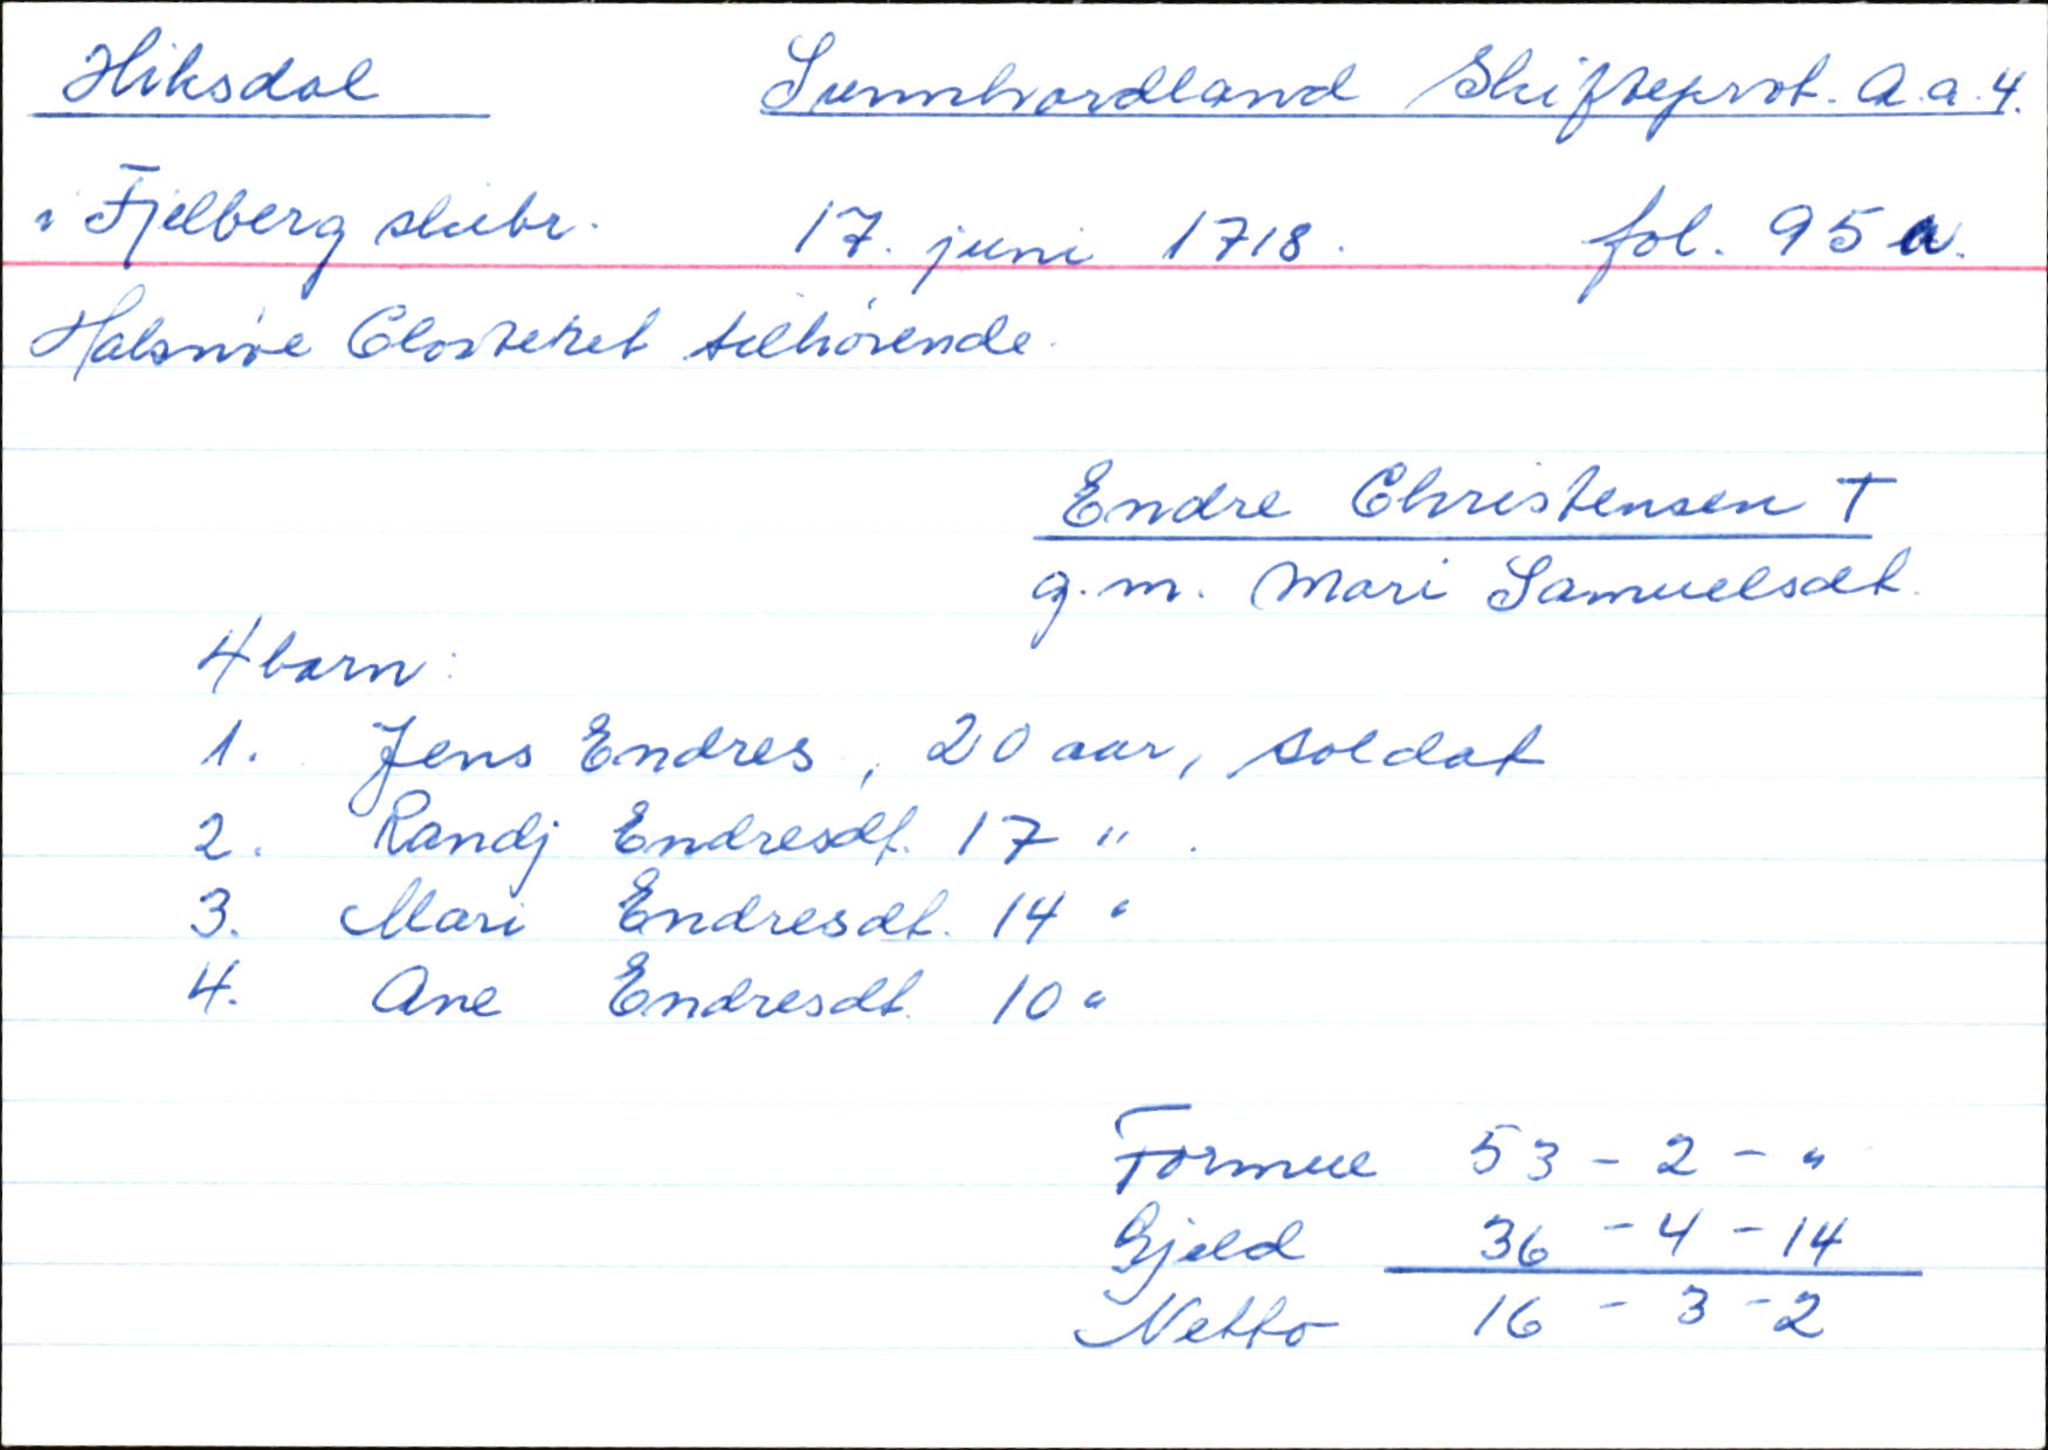 Hiksdal Sunnhordland Skifteprot. A.a.4.
i Fjelberg skibr. 17. juni 1718. fol. 95a.
Halsnöe Closteret tilhörende.
Endre Christensen †
g.m. Mari Samuelsdt.
4 barn:
1. Jens Endres, 20 aar, soldat
2. Randj Endresdt. 17 "
3. Mari Endresdt. 14 "
4. Ane Endresdt. 10 "
Formue 53 - 2 - "
Gjeld 36 - 4 - 14
Netto 16 - 3 - 2